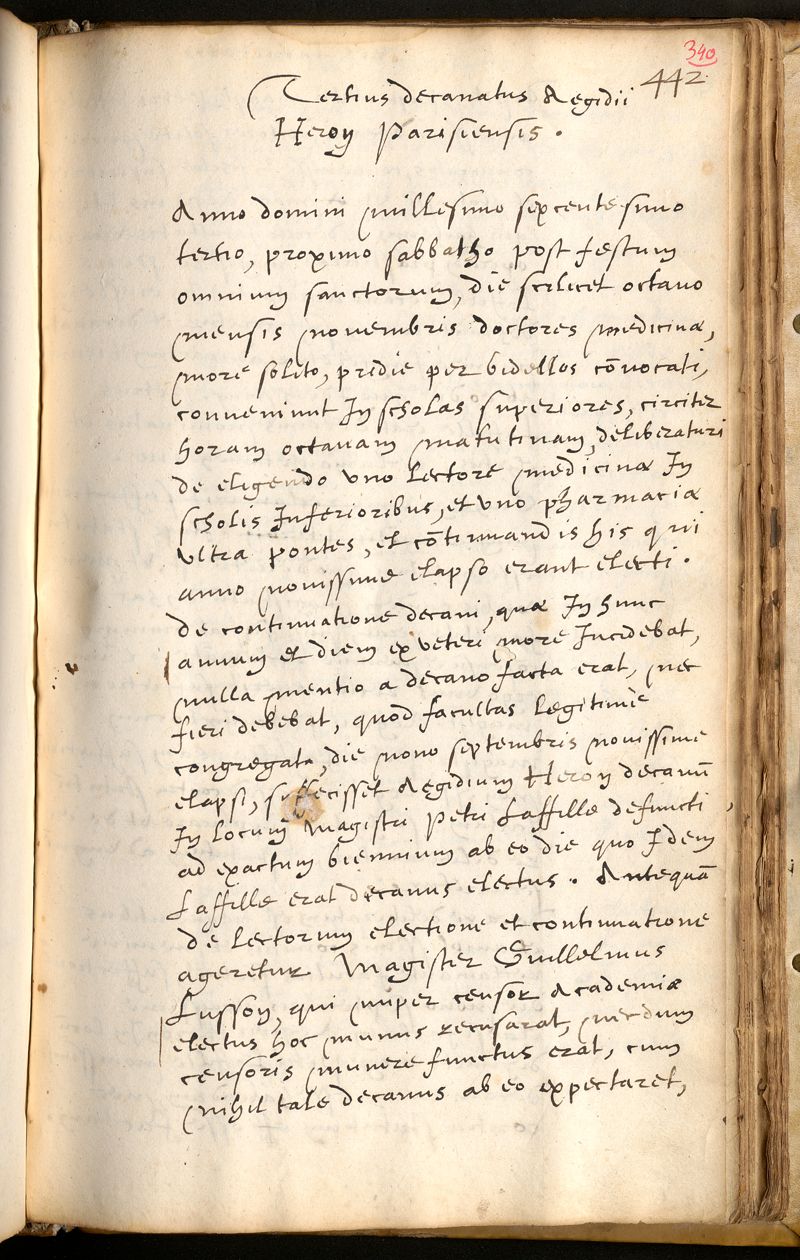 340
442.
Tertius decanatus Ægidii
Heron Parisiensis.
Anno domini millesimo sexcentesimo
tertio, proximo sabbatho post festum
omnium sanctorum, die scilicet octavo
mensis novembris doctores medicinæ,
more solito, pridie per bidellos cōvocati,
conveniunt In scholas superiores, circiter
horam octavam matutinam, deliberaturi
de eligendo uno lectore medicinæ In
scholis Inferioribus, et uno pharmaciæ
ultra pontes, et cōtinuandis his qui
anno novissime elapso erant electi.
de continuatione decani, quæ In hunc
annum et diem ex veteri more Incidebat,
nulla mentio a decano facta erat, nec
fieri debebat, quod facultas legitime
congregata, die nono septembris novissime
elapsi, suffecisset Ægidium Heron decanū
In locum Magistri Petri Laffille defuncti,
ad exactum biennium ab eo die quo Idem
Laffille erat decanus electus. Antequā
de lectorum electione et continuatione
ageretur Magister Guillelmus
Lusson, qui nuper censor Academiæ
electus hoc munus recusarat, necdum
censoris munere functus erat, cum
nihil tale decanus ab eo expectaret,